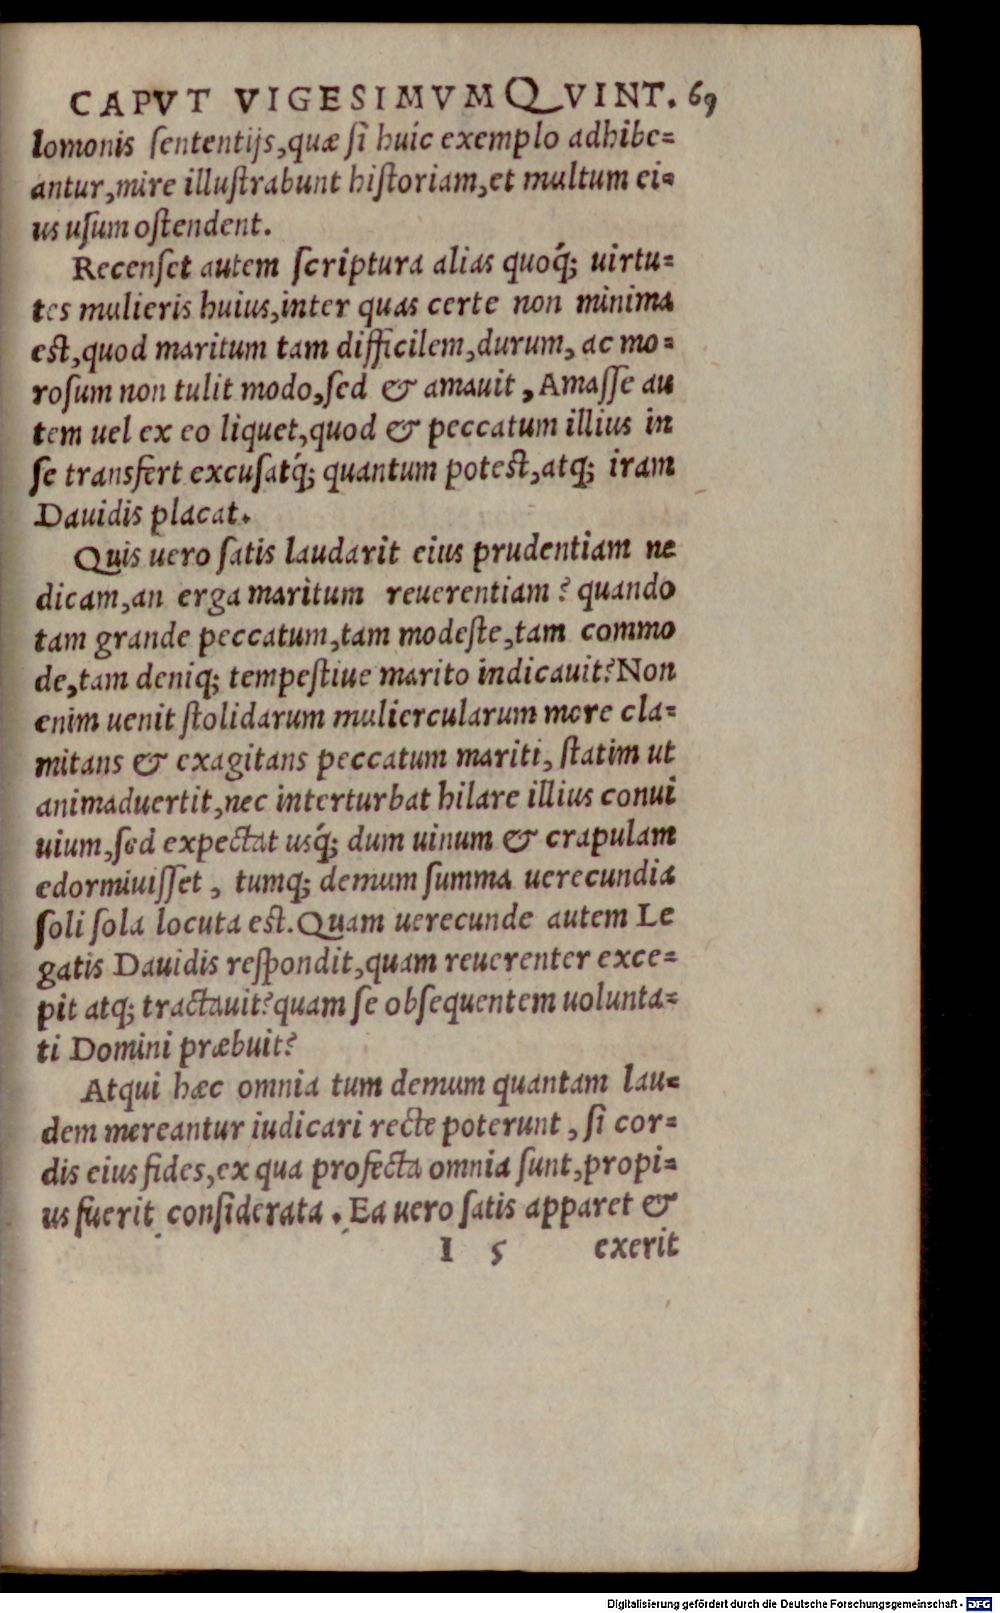 CAPVT VIGESIMVM QVINT. 69
lomonis ſententijs,quæ ſi huic exemplo adhibe=
antur,mire illuſtrabunt hiſtoriam,et multum ei=
us uſum oſtendent.
Recenſet autem ſcriptura alias quoq́; uirtu=
tes mulieris huius,inter quas certe non minima
eſt,quod maritum tam difficilem,durum, ac mo=
roſum non tulit modo,ſed & amauit , Amaſſe au
tem uel ex eo liquet,quod & peccatum illius in
ſe transfert excuſatq́; quantum poteſt,atq; iram
Dauidis placat.
Quis uero ſatis laudarit eius prudentiam ne
dicam,an erga maritum reuerentiam ? quando
tam grande peccatum,tam modeſte,tam commo
de,tam deniq; tempeſtiue marito indicauit?Non
enim uenit ſtolidarum muliercularum more cla=
mitans & exagitans peccatum mariti, ſtatim ut
animaduertit,nec interturbat hilare illius conui
uium,ſed expectat uſq́; dum uinum & crapulam
edormiuiſſet , tumq; demum ſumma uerecundia
ſoli ſola locuta eſt.Quam uerecunde autem Le
gatis Dauidis reſpondit,quam reuerenter exce=
pit atq; tractauit?quam ſe obſequentem uolunta=
ti Domini præbuit?
Atqui hæc omnia tum demum quantam lau=
dem mereantur iudicari recte poterunt , ſi cor=
dis eius fides,ex qua profecta omnia ſunt,propi=
us fuerit conſiderata . Ea uero ſatis apparet &
I 5 exerit
Digitalisierung gefördert durch die Deutsche Forschungsgemeinschaft - DFG